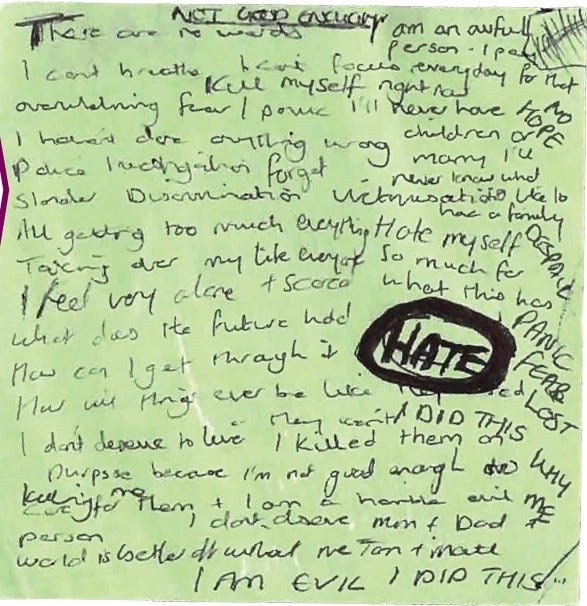 NOT GOOD ENOUGH
There are no words
am an awfull
person - I pay
everyday for that
I cant breathe I cant focus
Kill myself right now
overwhelming fear / panic I'll never have
NO
HOPE
I haven't done anything wrong children or
marry I'll
Police Investigation forget never know what
Slander Discrimination Victimisation its like to
have a family
All getting too much everything Hate myself
DESPAIR
Taking over my life everyday so much for
I feel very alone + scared what this has
what does the future hold
PANIC
HATE
How can I get through it
FEAR
How will things ever be like they
LOST
they won't I DID THIS
I don't deserve to live I killed them on
purpose because I'm not good enough to
WHY
care for them + I am a horrible evil
person
Killing me
ME
I don't deserve Mum + Dad
world is better off without me Tom + Matt
I AM EVIL I DID THIS